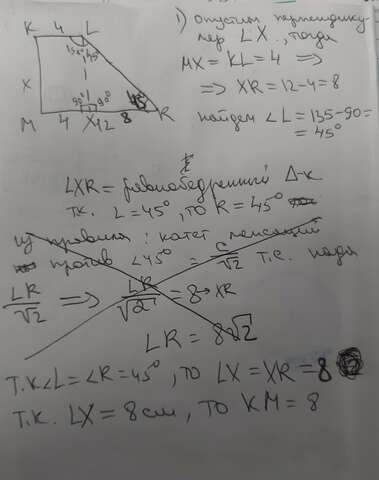 K 4 L
135° 45°
X
90° 90°
45°
M 4 X 12 8 R
1) опустим перпендику-
ляр LX, тогда
MX = KL = 4 =>
=> XR = 12-4 = 8
найдем <L = 135-90=
= 45°
LXR = равнобедренный Δ-к
т.к. L = 45°, то R = 45°
из правила: катет лежащий
против <45° = C/√2 т.е. надо
LR/√2 => LR/√2 = 8 → XR
LR = 8√2
т.к <L = <R = 45°, то LX = XR = 8
т.к. LX = 8 см, то KM = 8